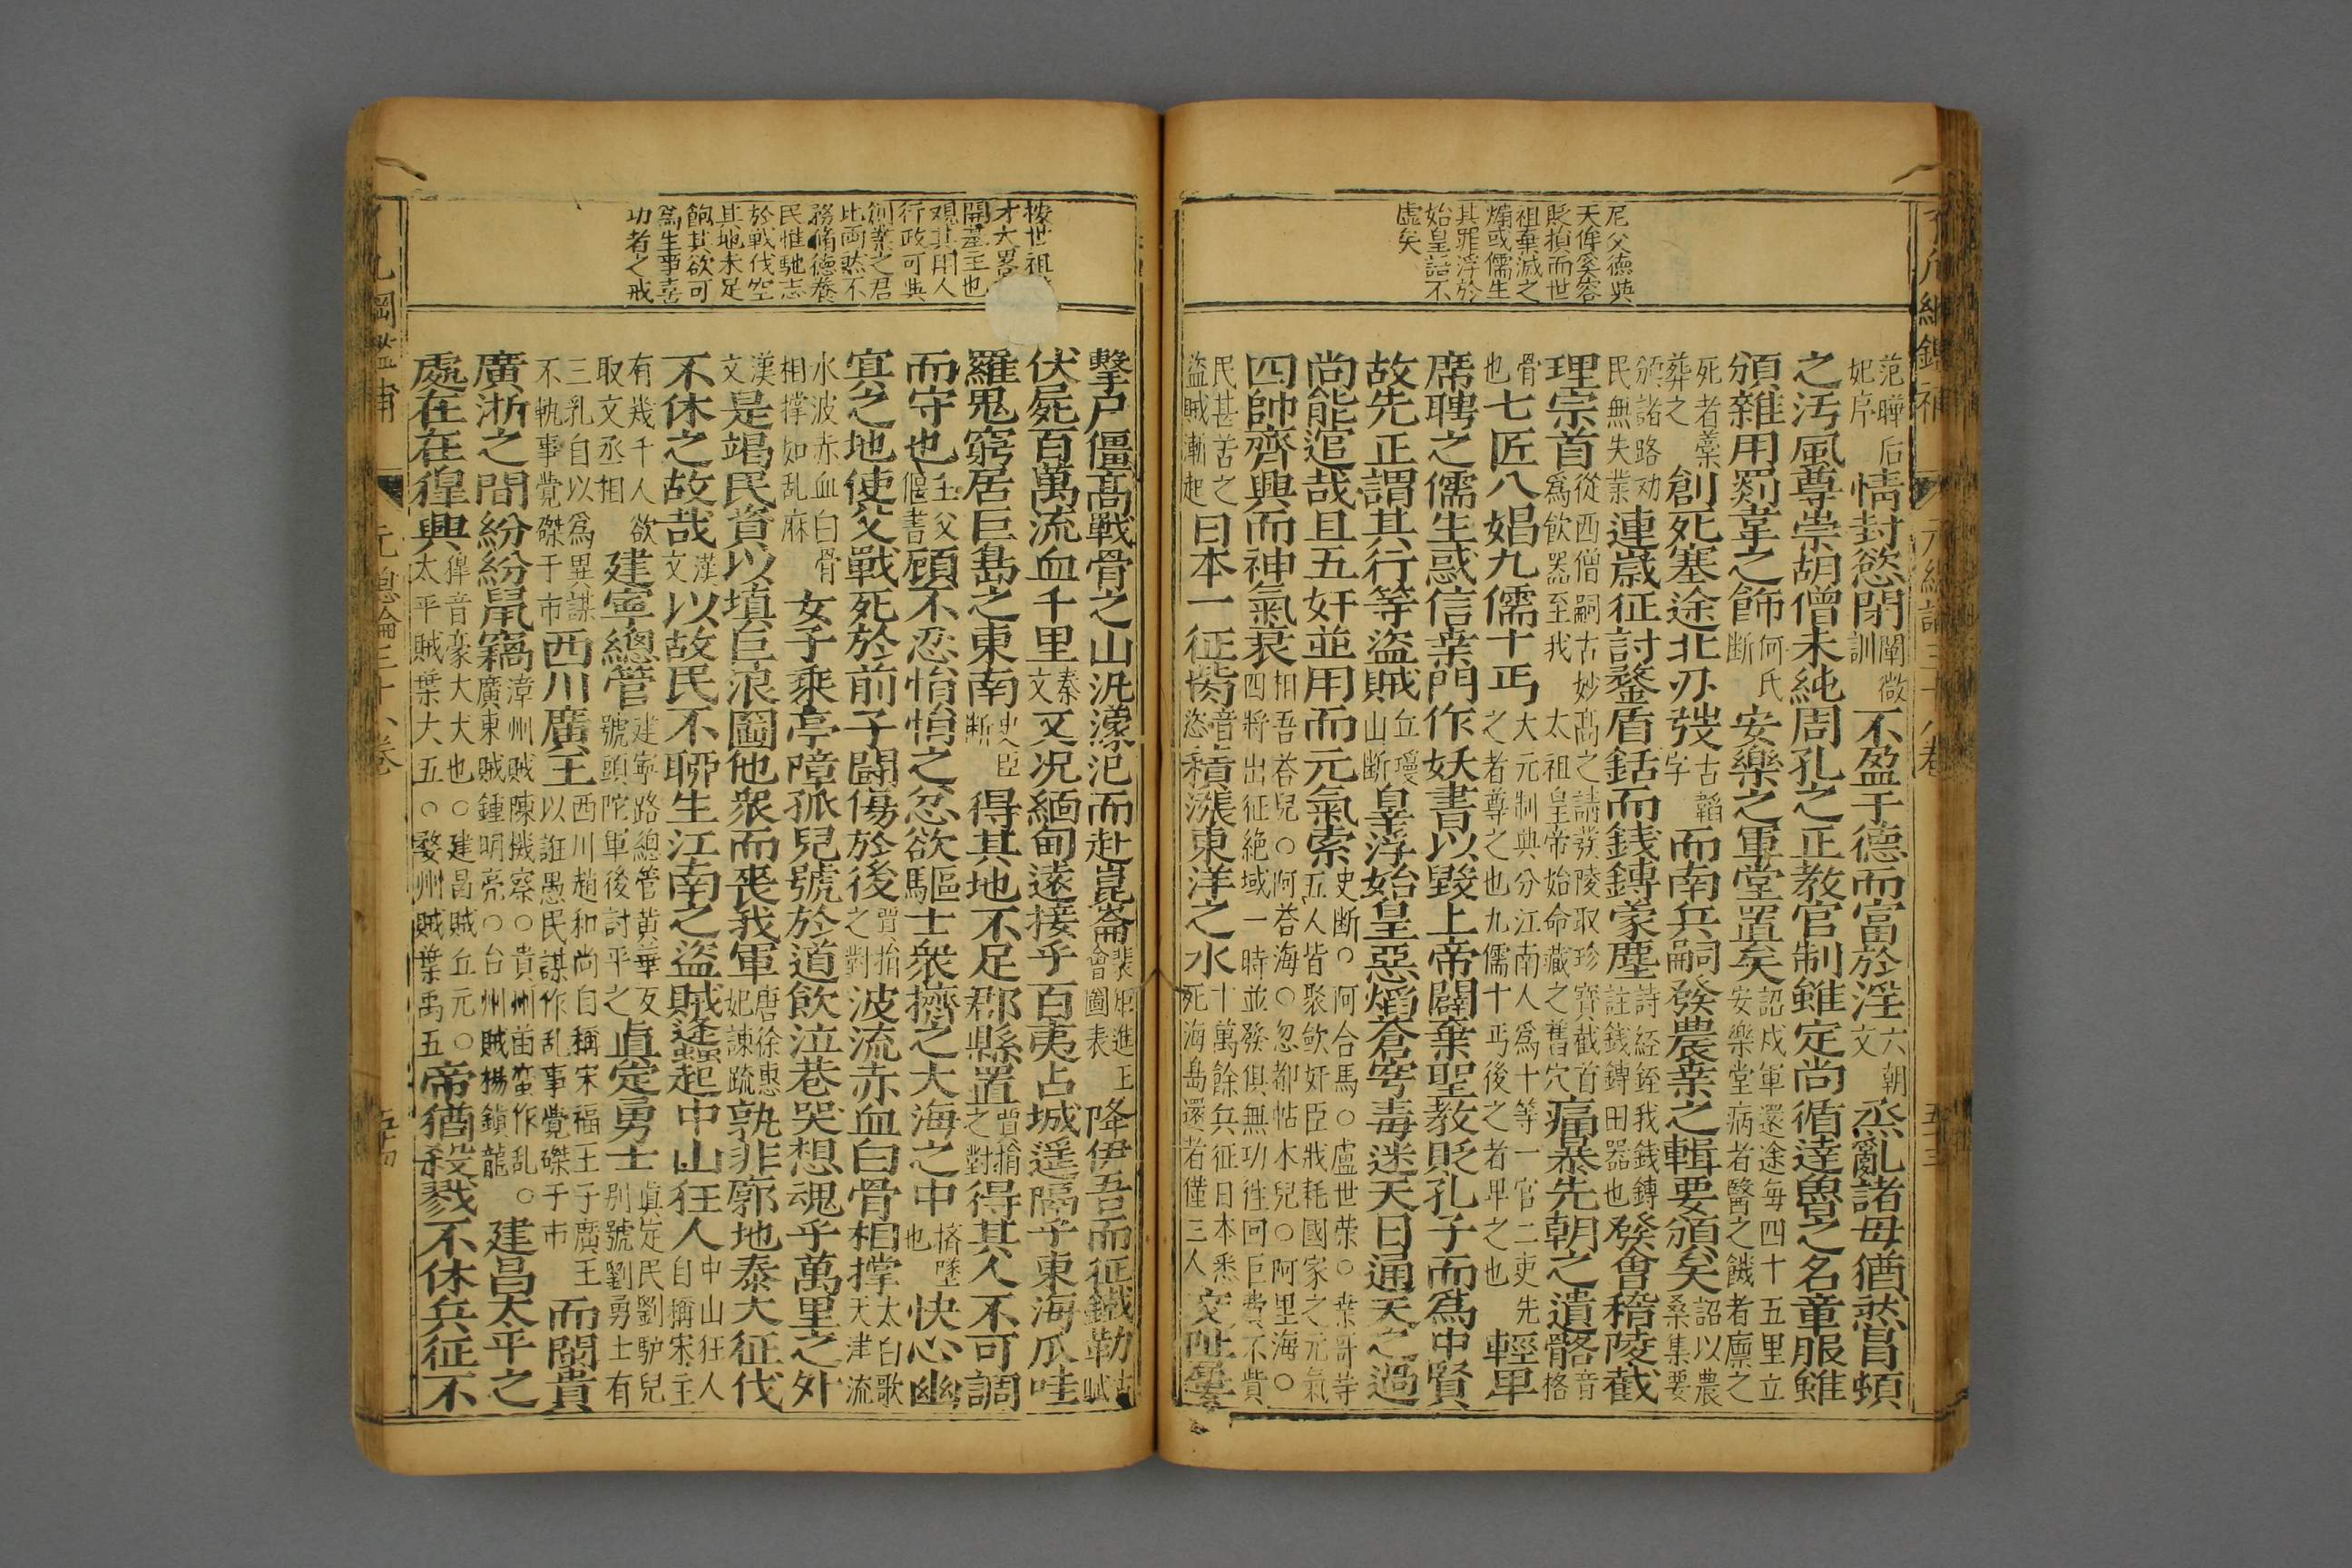 尼父德與
天侔奚容
貶損而世
祖棄滅之
煽或儒生
其罪浮於
始皇語不
虛矣
范曄后
妃序
情封慾閉
闡微
訓
不盈于德而富於淫
六朝
文
烝亂諸母猶然冒頓
之汚風尊崇胡僧未純周孔之正教官制雖定尚循達魯之名章服雖
頒雜用剟韋之飾
何氏
断
安樂之軍堂置矣
詔戍軍還途每四十五里立
安樂堂病者醫之饑者廪之
死者藁
葬之
創死塞途北刅
古韜
字
而南兵嗣發農桒之輯要頒矣
詔以農
桑集要
頒諸路劝
民無失業
連歳征討鍪盾銛而錢鎛蒙塵
詩経銍我錢鎛
註錢鎛田器也
發會稽陵截
理宗首
從西僧嗣古妙髙之請發陵取珍寳截首
爲飲器至我太祖皇帝始命藏之舊穴
痛暴先朝之遺骼
音
格
骨
也
七匠八娼九儒十丐
大元制典分江南人爲十等一官二吏先
之者尊之也九儒十丐後之者畢之也
輕畢
席聘之儒生惑信桒門作妖書以毀上帝闢棄聖教貶孔子而爲中賢
故先正謂其行等盜賊
丘瓊
山断
皇浮始皇惡熖蒼穹毒迷天日通天之過
尚能逭哉且五奸並用而元氣索
史断○阿合馬○盧世荣○桒哥等
五人皆聚歛奸臣戕耗國家之元氣
四帥齊興而神氣衰
相吾荅兒○阿荅海○忽都帖木兒○阿里海○
四將出征絶域一時並發俱無功徃回巨費不貲
民甚苦之
盜賊漸起
日本一征
音
恣
積漲東洋之水
十萬餘兵征日本悉
死海島還者僅三人
交阯
按世祖
才大畧
開基王也
观其用人
行政可與
創業之君
比両然不
務脩德養
民惟馳志
於戦伐空
其地未足
飽其欲可
為生事喜
功者之戒
擊戸僵髙戰骨之山汎濛汜而赴崑崙
會圖表
降伊吾而征鐵勒
伏屍百萬流血千里
秦
文
又况緬甸逺接乎百夷占城遥隔乎東海瓜哇
羅鬼窮居巨島之東南
史臣
断
得其地不足郡縣置
賈捐
之對
得其人不可調
而守也
主父
偃書
顧不忍悁悁之忿欲驅士衆擠之大海之中
擠墜
也
快心幽
㝠之地使父戰死於前子闘傷於後
賈捐
之對
波流赤血白骨相撑
太白歌
天津流
水波赤血白骨
相撑如乱麻
女子乘亭障孤兒號於道飲泣巷哭想魂乎萬里之外
漢
文
是竭民資以填巨浪圖他衆而䘮我軍
唐徐惠
妃諫䟽
孰非廓地泰大征伐
不休之故哉
漢
文
以故民不聊生江南之盜賊蠭起中山狂人
中山狂人
自稱宋主
有幾千人欲
取文丞相
建寕總管
建寕路總管黄華反
號頭陀軍後討平之
真定勇士
真定民劉驴兒
别號劉勇士有
三乳自以爲異謀
不軌事覺磔于市
西川廣王
西川趙和尚自稱宋福王子廣王
以誑愚民謀作乱事覺磔于市
而閩貴
廣浙之間紛紛鼠竊
漳州賊陳機察○貴州苗蛮作乱○
廣東賊鍾明亮○台州賊楊鎮龍
建昌太平之
處在在猩興
猩音豪大犬也○建昌賊丘元○
太平賊葉大五○婺州賊葉禹五
帝猶殺戮不休兵征不